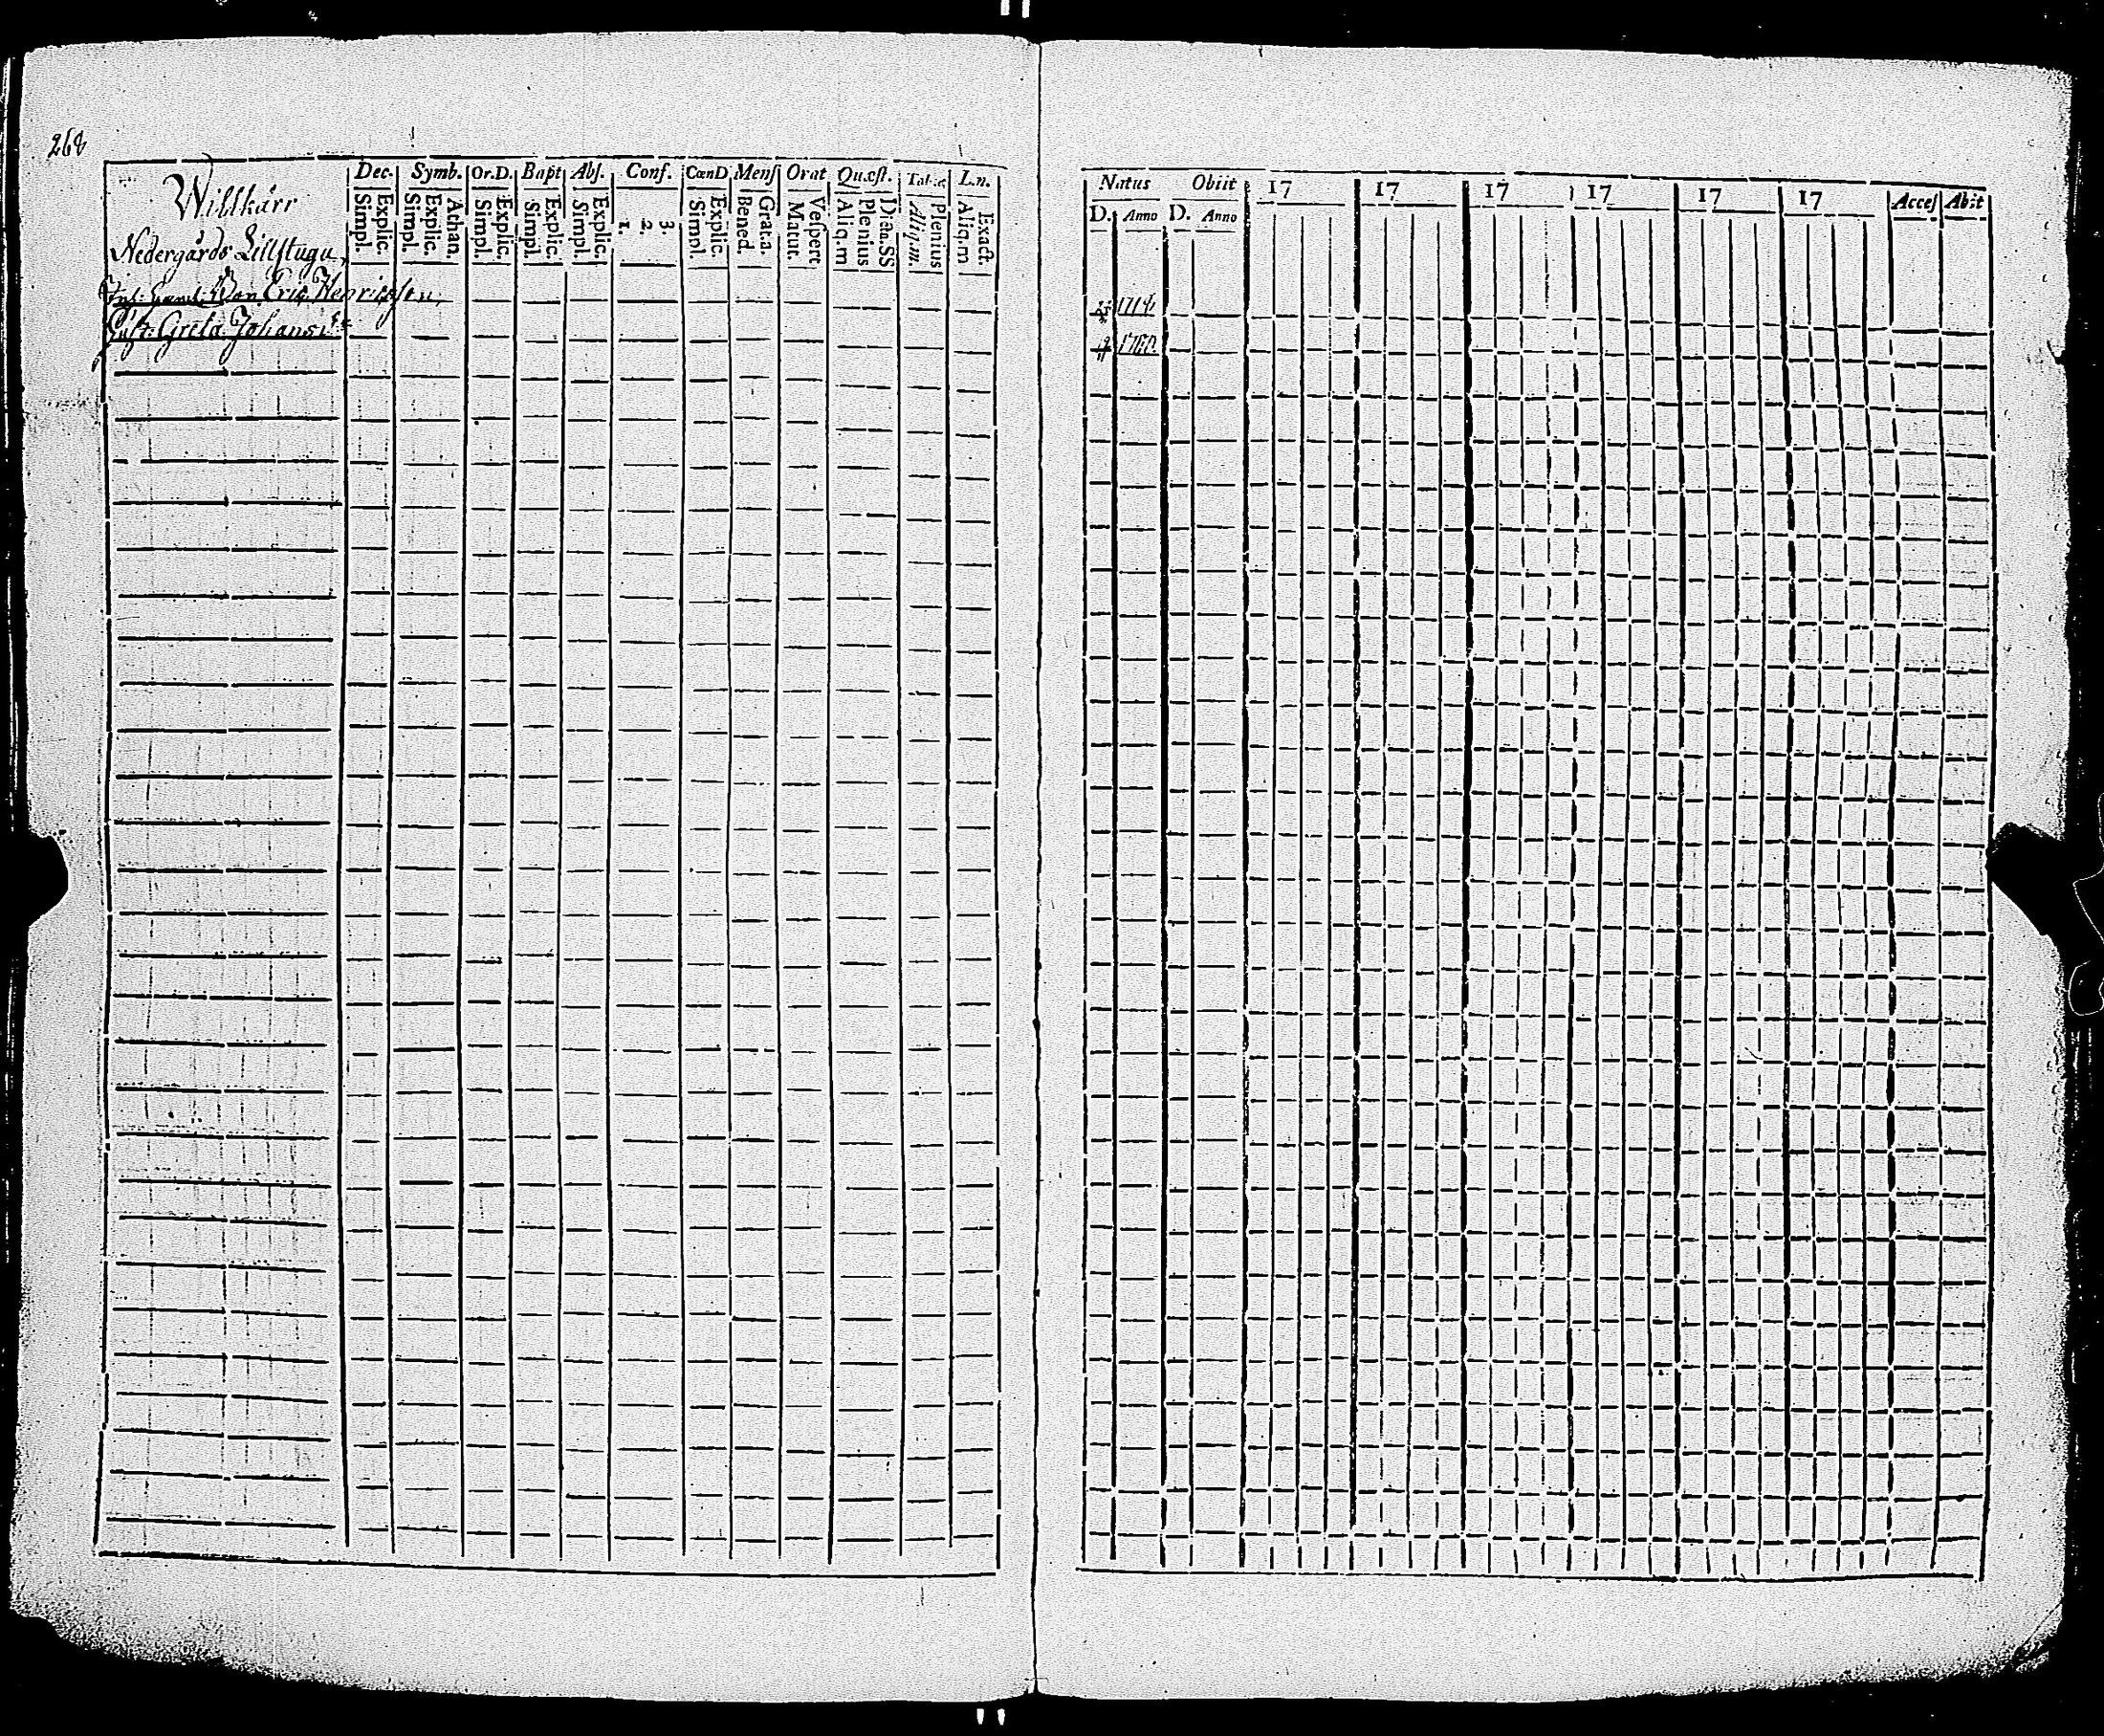 268
Willkärr
Dec. Symb. Or.D. Bapt Abſ. Conf. CœnD Menſ Orat Quæſt. Tab.æ L.n.
Simpl. Explic. Simpl. Explic. Athan. Simpl. Explic. Simpl. Explic. Simpl. Explic. 1. 2. 3. Simpl. Explic. Bened. Grat.a. Matut. Veſpert. Aliq.m Plenius Dicta.SS Aliq.m. Plenius Aliq.m Exact.
Nedergårds Lillſtugu
Eric Henricſſon
Greta Johansd:r
Natus Obiit 17 17 17 17 17 17 Acceſ Abit
D. Anno D. Anno
17
1760.